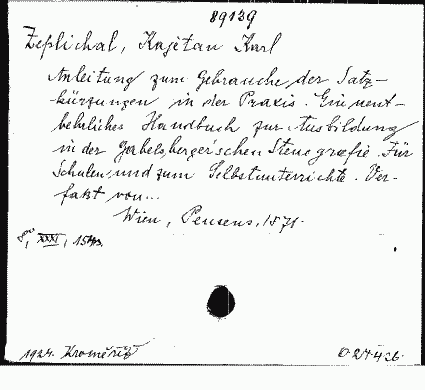 89139
Zeplichal, Kajetan Karl
Anleitung zum Gebrauche der Satz-
kürzungen in der Praxis. Ein unent-
behrliches Handbuch zur Ausbildung
in der Gabelsberger'schen Stenografie. Für
Schulen und zum Selbstunterrichte. Ver-
faßt von...
Wien, Pensens, 1871.
8°, XXXI, 15
1924. Kroměříž
O 27426.